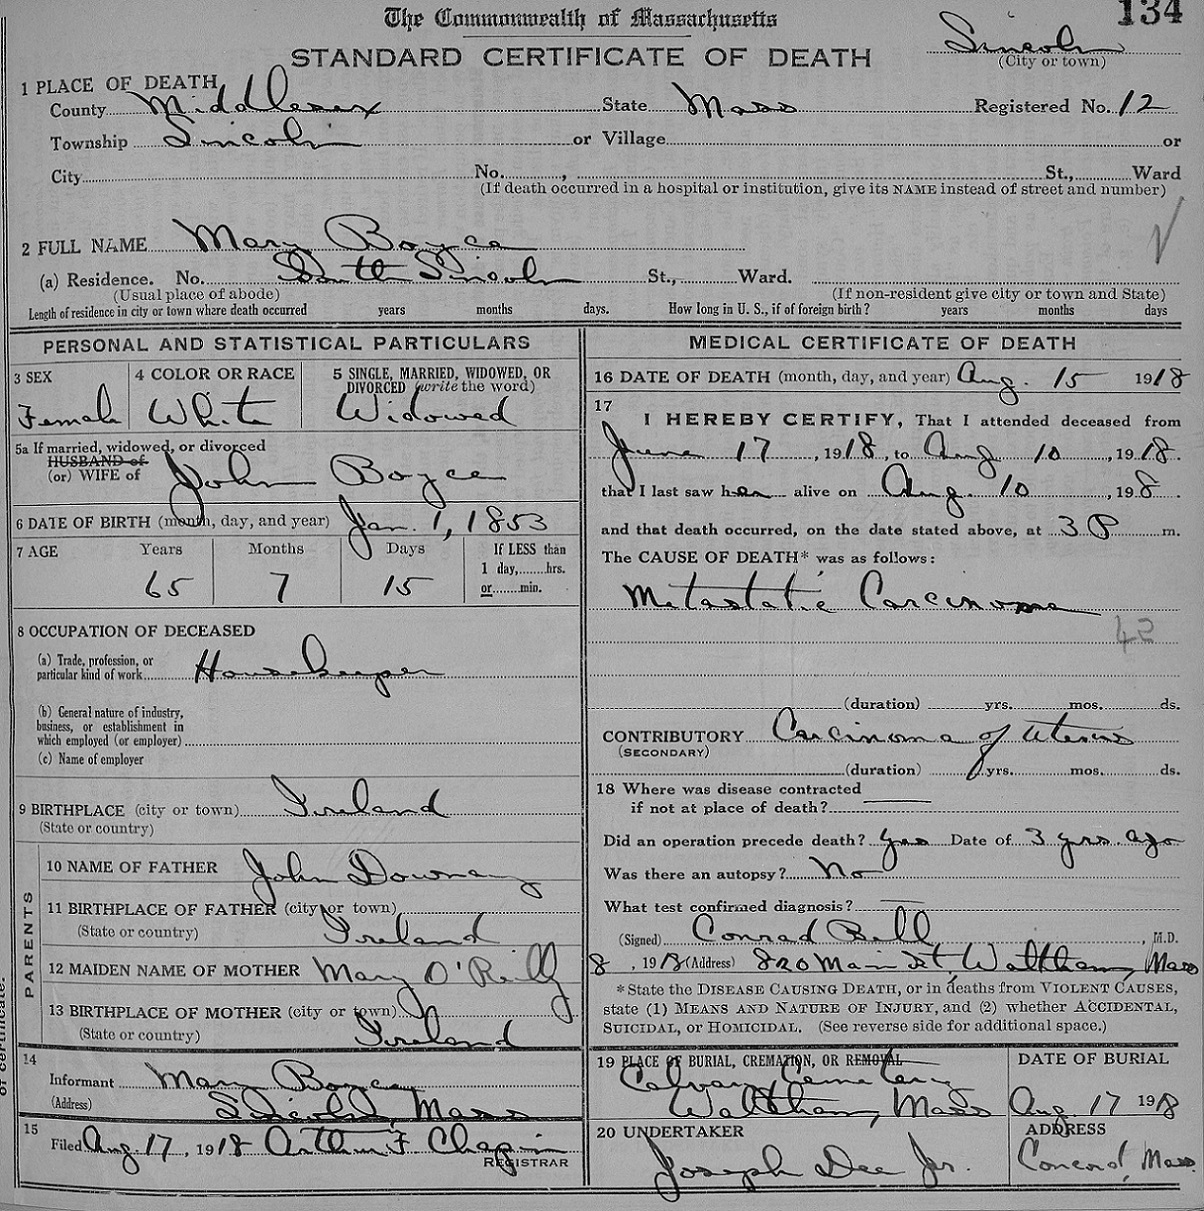 The Commonwealth of Massachusetts
134
STANDARD CERTIFICATE OF DEATH
Lincoln
(City or town)
1 PLACE OF DEATH
County Middlesex State Mass Registered No. 12
Township Lincoln or Village or
City No. , St., Ward
(If death occurred in a hospital or institution, give its NAME instead of street and number)
2 FULL NAME Mary Boyce
(a) Residence. No. South Lincoln St., Ward.
(Usual place of abode) (If non-resident give city or town and State)
Length of residence in city or town where death occurred years months days. How long in U. S., if of foreign birth? years months days
PERSONAL AND STATISTICAL PARTICULARS
3 SEX 4 COLOR OR RACE 5 SINGLE, MARRIED, WIDOWED, OR
DIVORCED (write the word)
Female White Widowed
5a If married, widowed, or divorced
HUSBAND of
(or) WIFE of John Boyce
6 DATE OF BIRTH (month, day, and year) Jan. 1, 1853
7 AGE Years Months Days If LESS than
1 day,........hrs.
or........min.
65 7 15
8 OCCUPATION OF DECEASED
(a) Trade, profession, or
particular kind of work Housekeeper
(b) General nature of industry,
business, or establishment in
which employed (or employer)
(c) Name of employer
9 BIRTHPLACE (city or town) Ireland
(State or country)
PARENTS
10 NAME OF FATHER John Downey
11 BIRTHPLACE OF FATHER (city or town)
(State or country) Ireland
12 MAIDEN NAME OF MOTHER Mary O'Reilly
13 BIRTHPLACE OF MOTHER (city or town)
(State or country) Ireland
14
Informant Mary Boyce
(Address) Lincoln Mass
15
Filed Aug 17, 1918 Arthur F Chapin
REGISTRAR
of certificate.
MEDICAL CERTIFICATE OF DEATH
16 DATE OF DEATH (month, day, and year) Aug. 15 1918
17
I HEREBY CERTIFY, That I attended deceased from
June 17, 1918, to Aug 10, 1918.
that I last saw her alive on Aug. 10, 1918.
and that death occurred, on the date stated above, at 3 P m.
The CAUSE OF DEATH* was as follows:
Metastatic Carcinoma
42
(duration) yrs. mos. ds.
CONTRIBUTORY Carcinoma of uterus
(SECONDARY)
(duration) yrs. mos. ds.
18 Where was disease contracted
if not at place of death?
Did an operation precede death? yes Date of 3 yrs. ago
Was there an autopsy? No
What test confirmed diagnosis?
(Signed) Conrad Bell, M.D.
8, 1918 (Address) 820 Main St, Waltham, Mass
*State the DISEASE CAUSING DEATH, or in deaths from VIOLENT CAUSES,
state (1) MEANS AND NATURE OF INJURY, and (2) whether ACCIDENTAL,
SUICIDAL, or HOMICIDAL. (See reverse side for additional space.)
19 PLACE OF BURIAL, CREMATION, OR REMOVAL
Calvary Cemetery
Waltham, Mass
DATE OF BURIAL
Aug 17 1918
20 UNDERTAKER
Joseph Dee Jr.
ADDRESS
Concord, Mass.